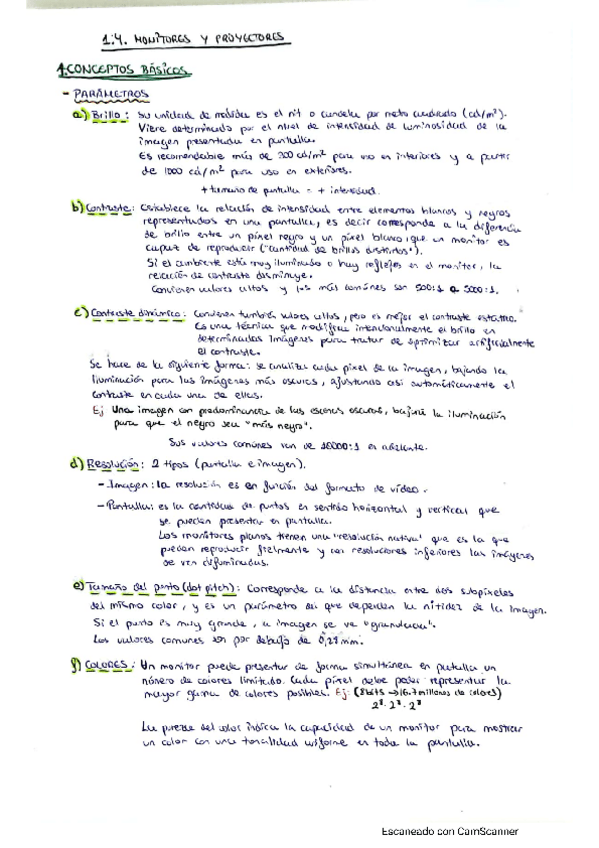 1.4. MONITORES Y PROYECTORES
1. CONCEPTOS BÁSICOS
- PARÁMETROS
a) Brillo: su unidad de medida es el nit o candela por metro cuadrado (cd/m²).
Viene determinado por el nivel de intensidad de luminosidad de la
imagen presentada en pantalla.
Es recomendable más de 300 cd/m² para uso en interiores y a partir
de 1000 cd/m² para uso en exteriores.
+ tamaño de pantalla = + intensidad.
b) Contraste: Establece la relación de intensidad entre elementos blancos y negros
representados en una pantalla, es decir corresponde a la diferencia
de brillo entre un píxel negro y un píxel blanco, que un monitor es
capaz de reproducir ("cantidad de brillos distintos").
Si el ambiente está muy iluminado o hay reflejos en el monitor, la
relación de contraste disminuye.
Convienen valores altos y los más comúnes son 500:1 a 5000:1.
c) Contraste dinámico: Convienen también valores altos, pero es mejor el contraste estático.
Es una técnica que modifica intencionalmente el brillo en
determinadas imágenes para tratar de optimizar artificialmente
el contraste.
Se hace de la siguiente forma: se analiza cada píxel de la imagen, bajando la
iluminación para las imágenes más oscuras, ajustando así automáticamente el
contraste en cada una de ellas.
Ej: Una imagen con predominancia de las escenas oscuras, bajará la iluminación
para que el negro sea "más negro".
Sus valores comúnes van de 10000:1 en adelante.
d) Resolución: 2 tipos (pantalla e imagen).
- Imagen: la resolución es en función del formato de vídeo.
- Pantalla: es la cantidad de puntos en sentido horizontal y vertical que
se pueden presentar en pantalla.
Los monitores planos tienen una "resolución nativa" que es la que
pueden reproducir fielmente y con resoluciones inferiores las imágenes
se ven difuminadas.
e) Tamaño del punto (dot pitch): Corresponde a la distancia entre dos subpíxeles
del mismo color, y es un parámetro del que depende la nitidez de la imagen.
Si el punto es muy grande, la imagen se ve "granulada".
Los valores comunes son por debajo de 0,28mm.
f) COLORES: Un monitor puede presentar de forma simultánea en pantalla un
número de colores limitado. Cada píxel debe poder representar la
mayor gama de colores posibles. Ej: (8 bits → 16.7 millones de colores)
2⁸ · 2⁸ · 2⁸
La pureza del color indica la capacidad de un monitor para mostrar
un color con una tonalidad uniforme en toda la pantalla.
Escaneado con CamScanner